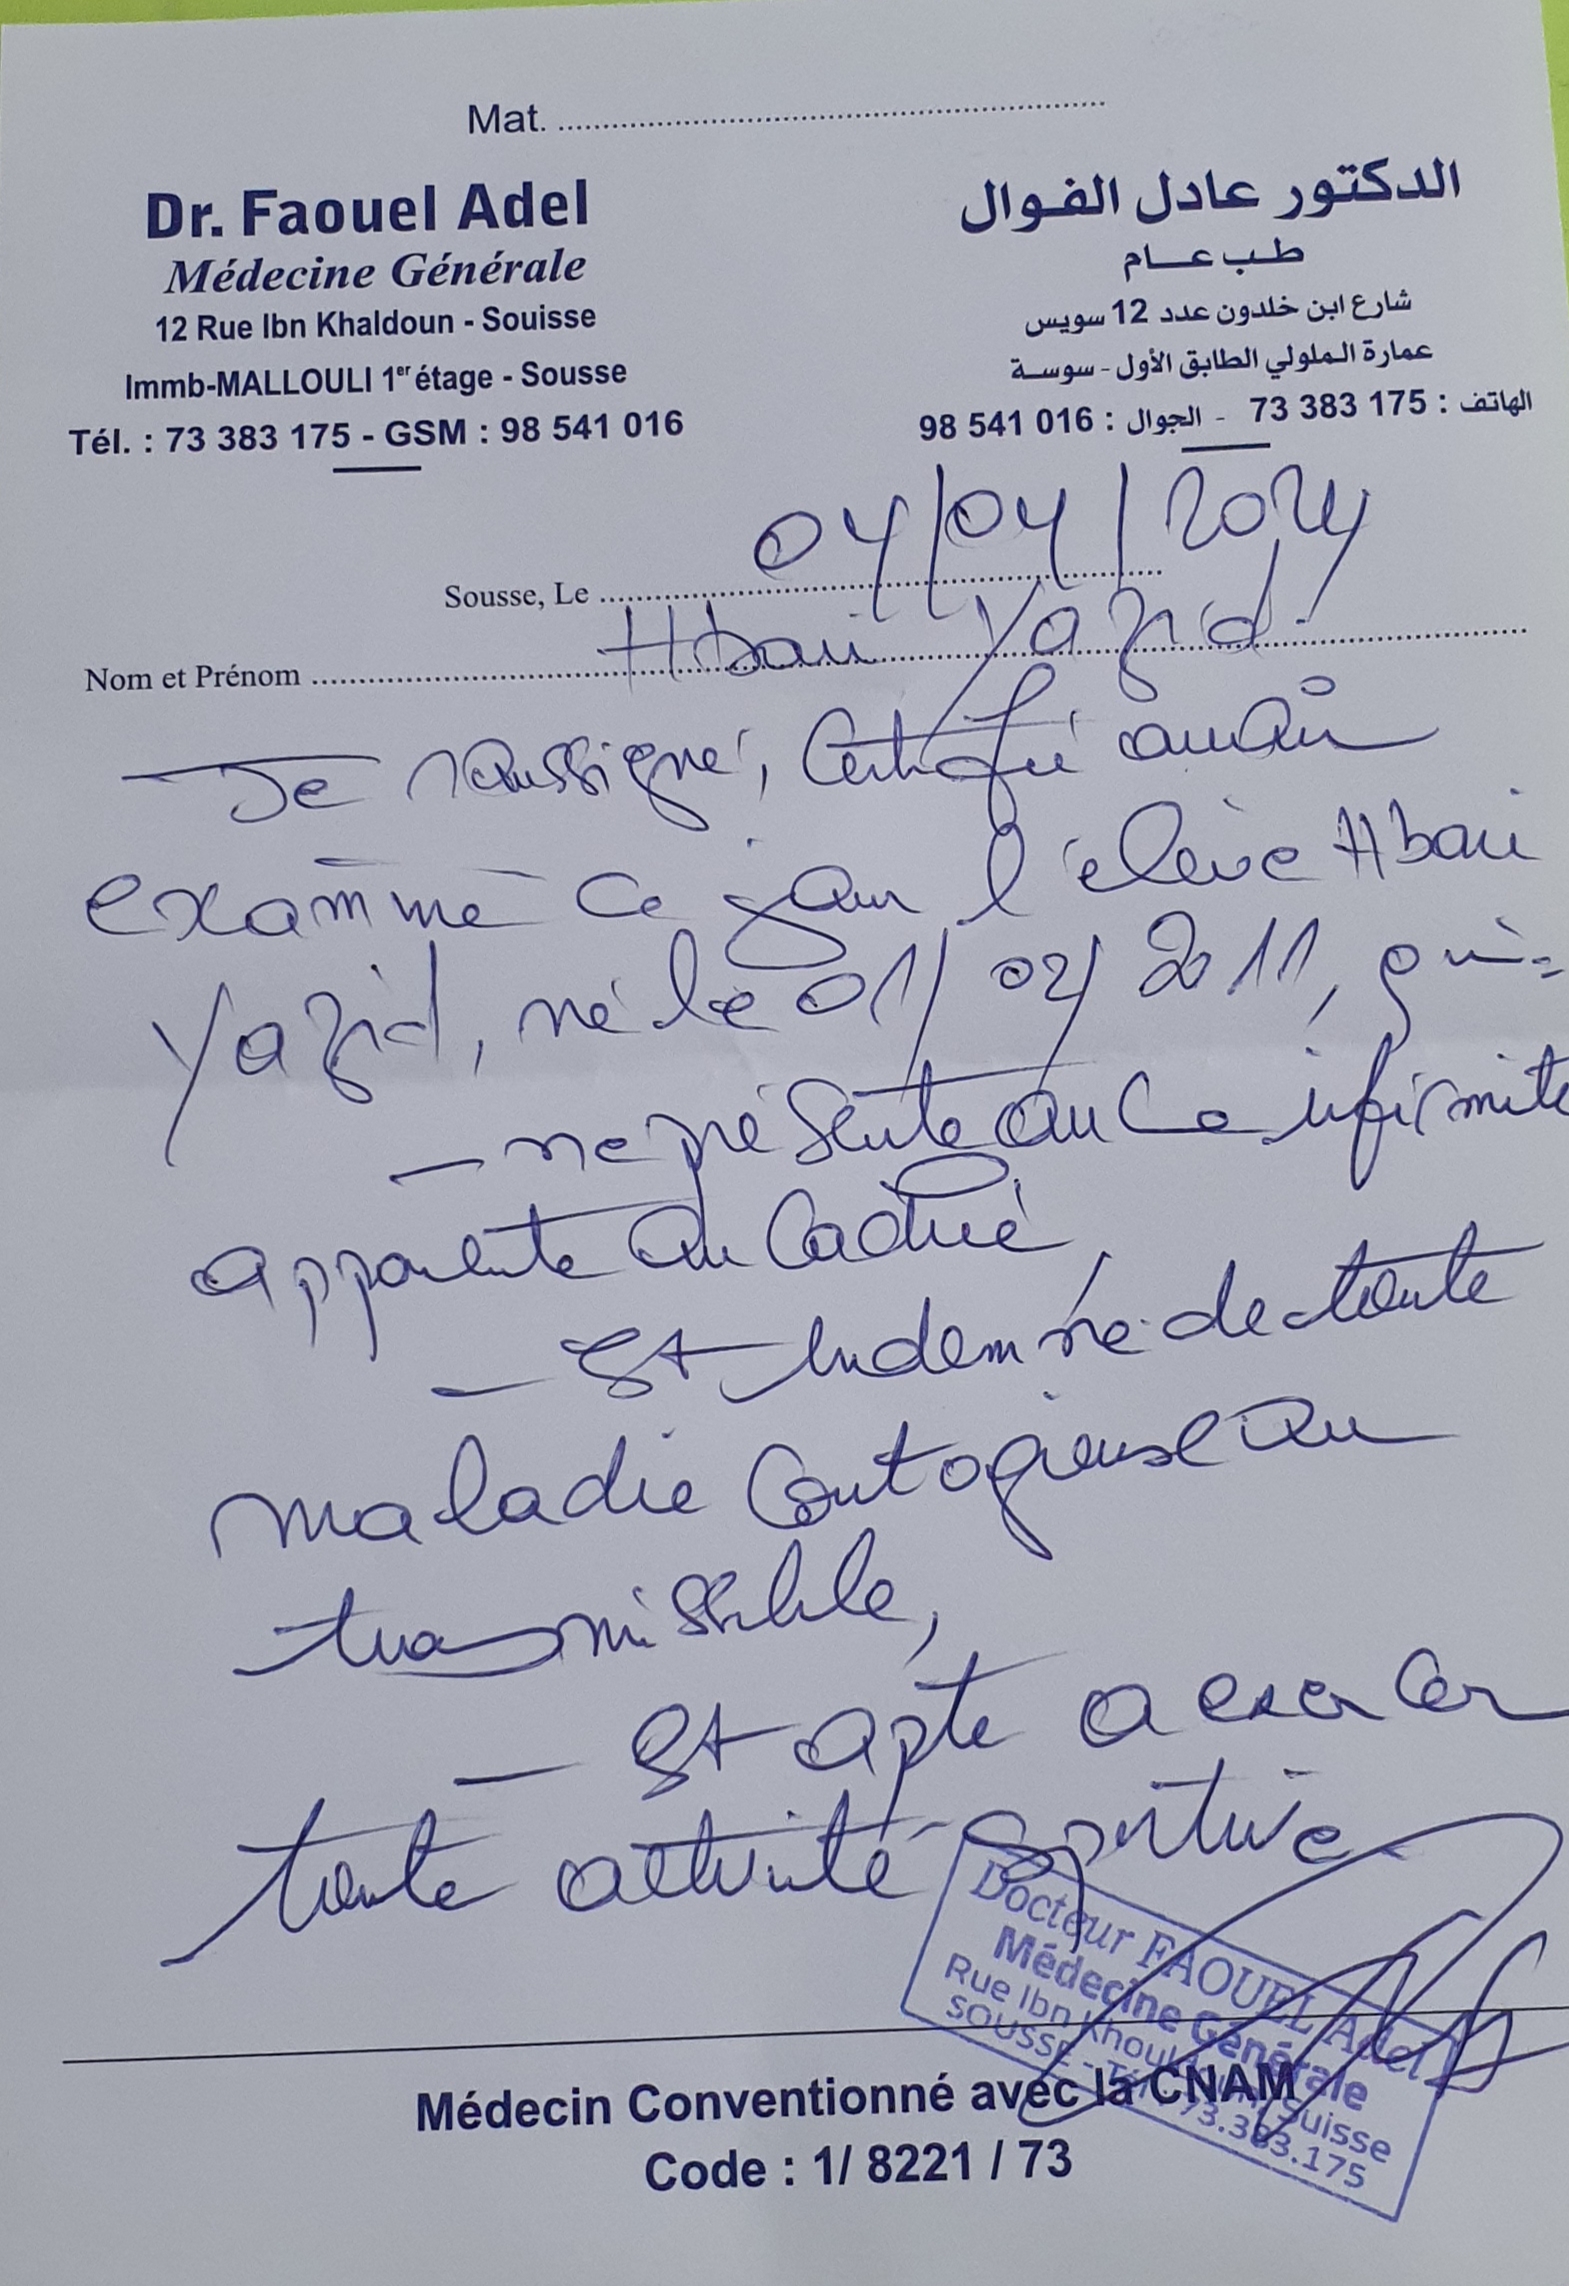 Mat. ..........
Dr. Faouel Adel
Médecine Générale
12 Rue Ibn Khaldoun - Souisse
Immb-MALLOULI 1er étage - Sousse
Tél. : 73 383 175 - GSM : 98 541 016
الدكتور عادل الفوال
طب عام
شارع ابن خلدون عدد 12 سويس
عمارة الملولي الطابق الأول - سوسة
الهاتف : 175 383 73 - الجوال : 016 541 98
Sousse, Le 04/04/2024
Nom et Prénom Hbaii Yazid
Je soussigné, Certifié avoir
examiné ce jour l'élève Hbaii
Yazid, né le 01/02/2011, qui
- ne présente aucune infirmité
apparente ou cachée,
- Est Indemne de toute
maladie Contagieuse ou
transmissible,
- Est apte a exercer
toute activité sportive
Docteur FAOUEL Adel
Médecine Générale
Rue Ibn Khouldoun Suisse
SOUSSE - Tél: 73.383.175
Médecin Conventionné avec la CNAM
Code : 1/ 8221 / 73